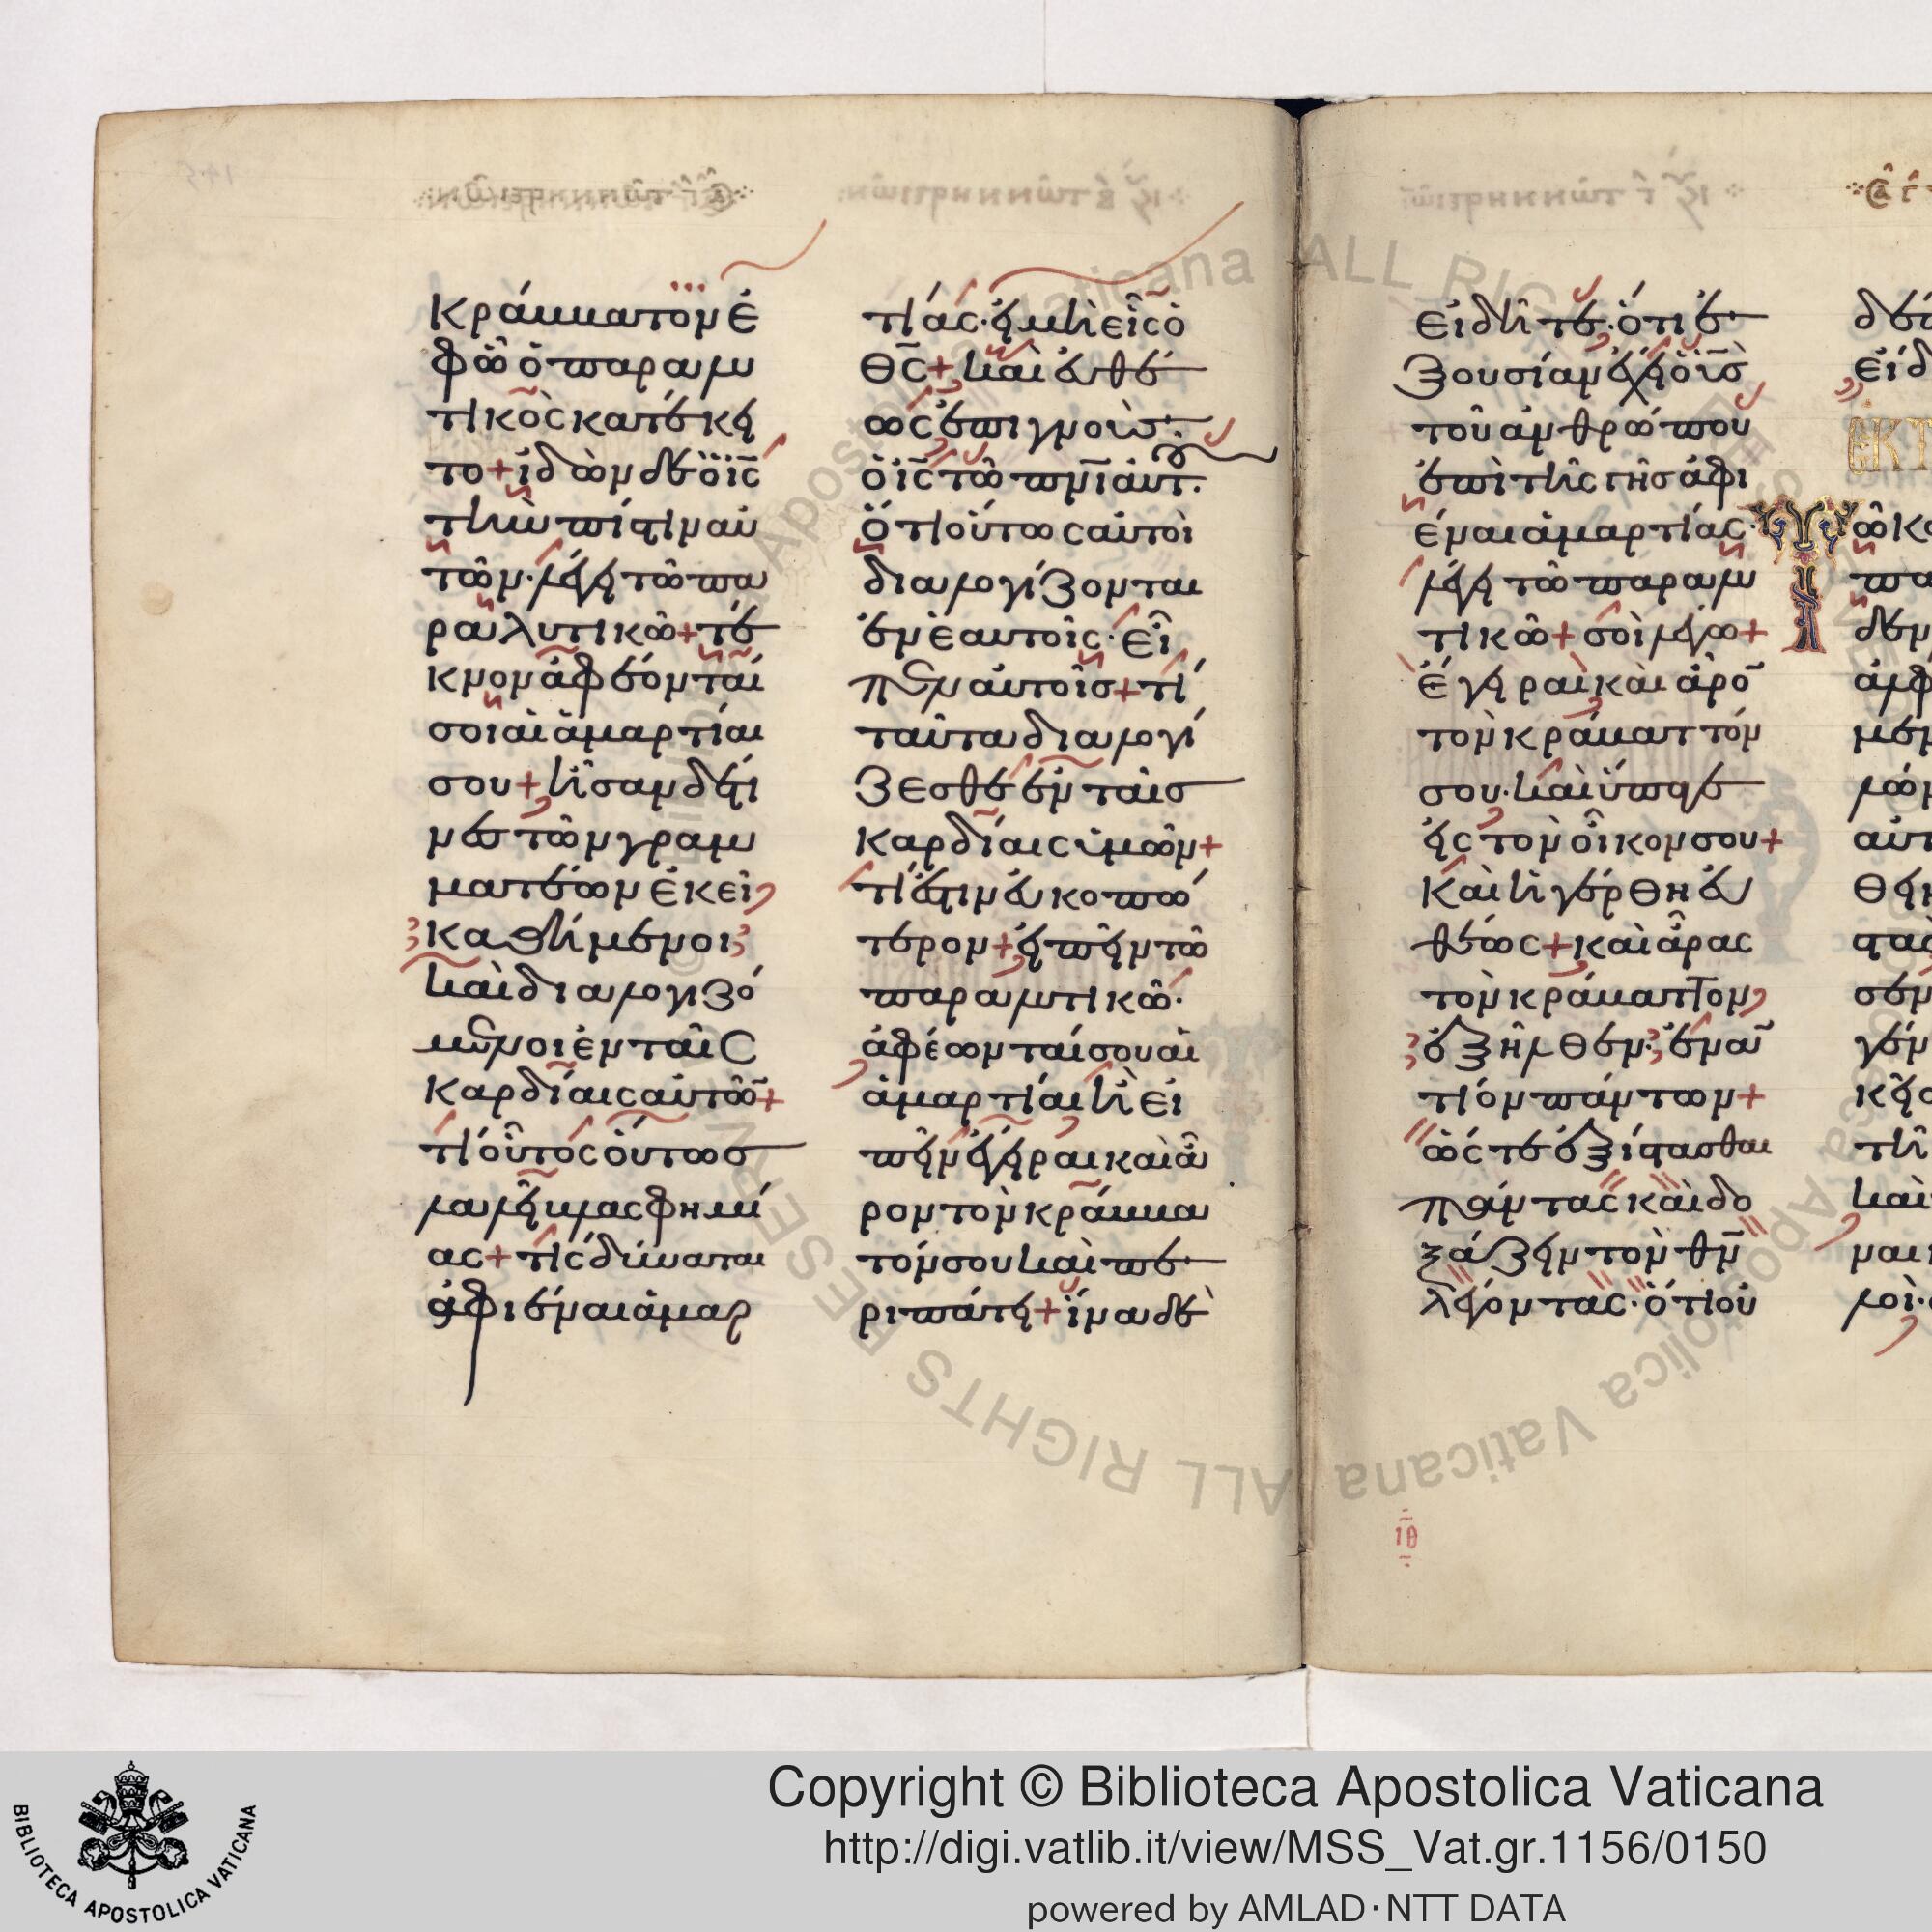 κράμματον ἐ
φῶ ὁ παραλυ
τικὸς κατέκει
το + ἰδὼν δὲ ὁ ἰς
τὴν πίστιν αὐ
τῶν · λέγει τῶ πα
ραλυτικῶ + τέ
κνον ἀφέονταί
σοι αἱ ἁμαρτίαι
σου + ἦσαν δέ τι
νες τῶν γραμ
ματέων ἐκεῖ
καθήμενοι
καὶ διαλογιζό
μενοι ἐν ταῖς
καρδίαις αὐτῶ +
τί οὗτος οὕτως
λαλεῖ βλασφημί
ας + τίς δύναται
ἀφιέναι ἁμαρ
τίας · εἰ μὴ εἷς ὁ
θς + καὶ εὐθέ
ως ἐπιγνοὺς
ὁ ις τῶ πνι αὐτ.
ὅτι οὕτως αὐτοὶ
διαλογίζονται
ἐν ἑαυτοῖς · εἶ
πεν αὐτοῖς + τί
ταῦτα διαλογί
ζεσθε ἐν ταῖς
καρδίαις ὑμῶν +
τί ἐστιν εὐκοπώ
τερον + εἰπεῖν τῶ
παραλυτικῶ ·
ἀφέωνταί σου αἱ
ἁμαρτίαι ἢ εἰ
πεῖν ἔγειραι καὶ ἆ
ρον τὸν κράμμα
τόν σου καὶ πε
ριπάτει + ἵνα δὲ
εἰδῆτε · ὅτι ἐ
ξουσίαν ἔχει ὁ υς
τοῦ ἀνθρώπου
ἐπὶ τῆς γῆς ἀφι
έναι ἁμαρτίας ·
λέγει τῶ παραλυ
τικῶ + σοὶ λέγω +
ἔγειραι καὶ ἆρο
τὸν κράματτόν
σου · καὶ ὕπαγε
εἰς τὸν οἶκον σου +
Καὶ ἠγέρθη εὐ
θέως + καὶ ἄρας
τὸν κράματτον
ἐξῆλθεν · ἐναν
τίον πάντων +
ὥς τε ἐξίστασθαι
πάντας καὶ δο
ξάζειν τὸν θν
λέγοντας · ὅτι οὐ
ιθ
δὲ
εἴδ
ΕΚΤ
Τῶ κ
πα
δεν
ἀμφ
μεν
λων
αὐτ
θην
στας
σεν
γεν
κει
τῆ
καὶ
ναι
λοι ·
Copyright © Biblioteca Apostolica Vaticana
http://digi.vatlib.it/view/MSS_Vat.gr.1156/0150
powered by AMLAD·NTT DATA
BIBLIOTECA APOSTOLICA VATICANA